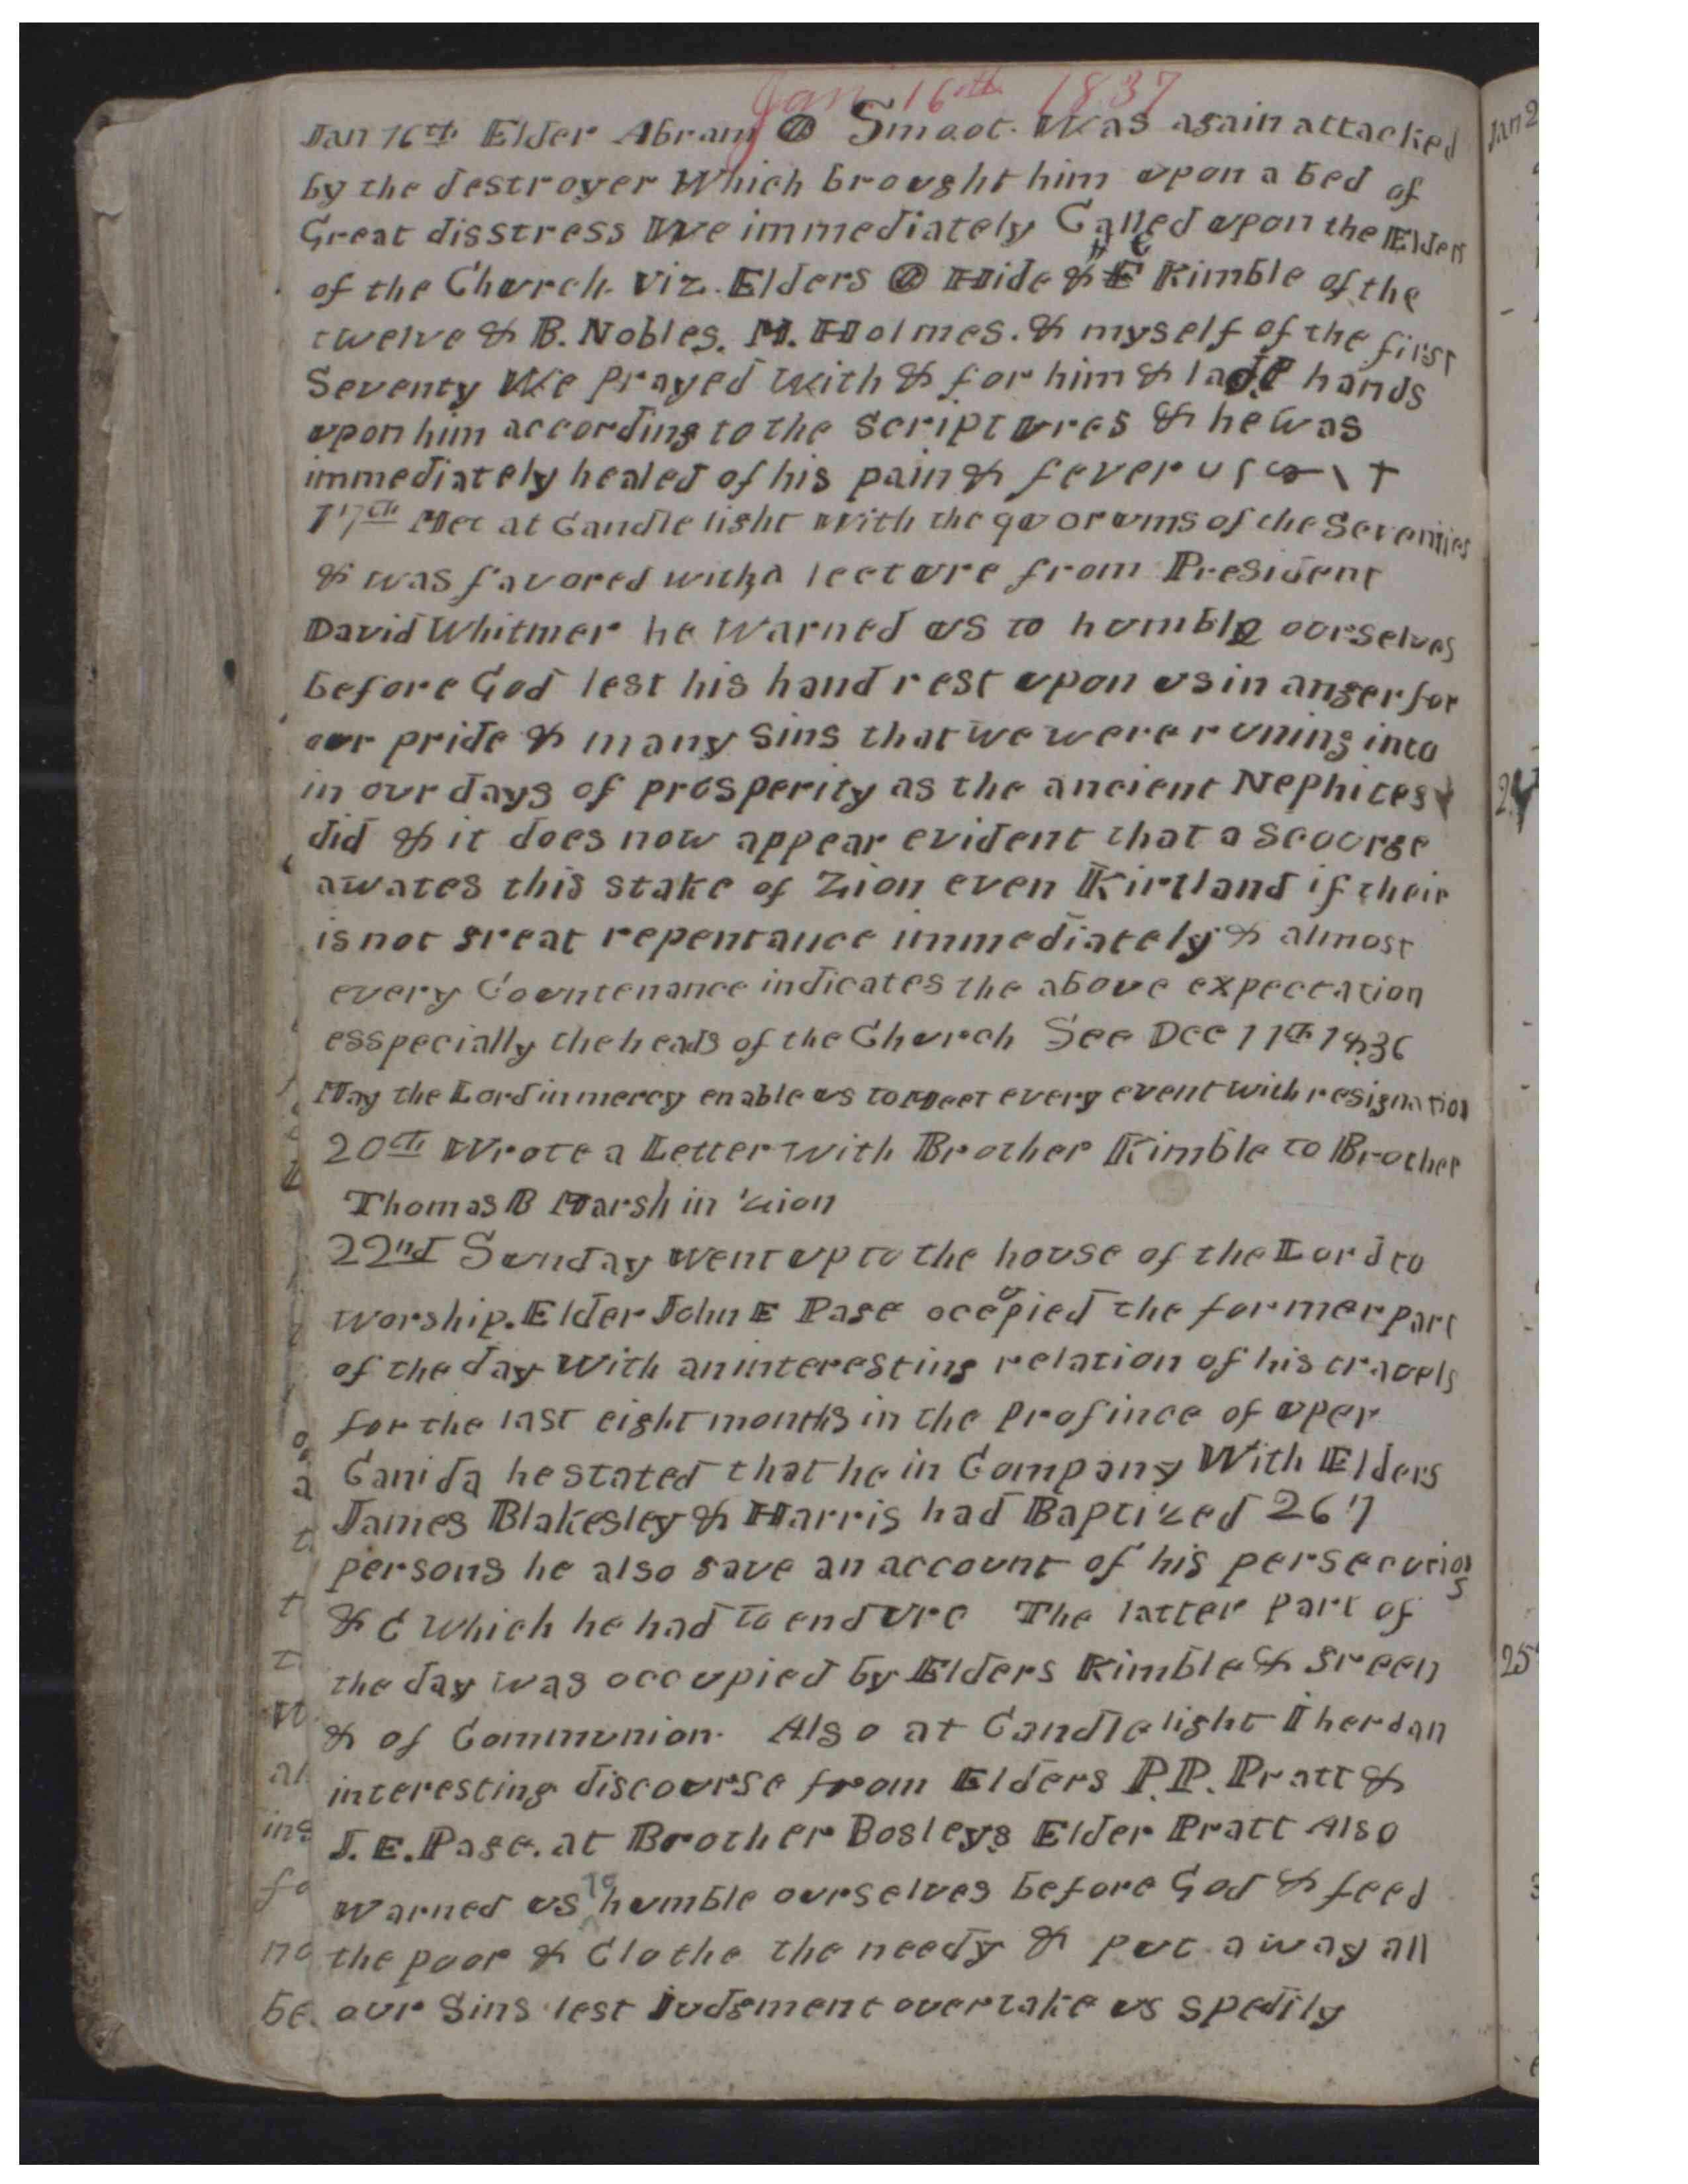 Jan 16th 1837
Jan 16th Elder Abram O Smoot. Was again attacked
by the destroyer Which brought him upon a bed of
Great disstress We immediately Called upon the Elders
of the Church. viz. Elders O Hide & H C Kimble of the
twelve & B. Nobles. M. Holmes. & myself of the first
Seventy We Prayed With & for him & lade hands
upon him according to the scriptures & he was
immediately healed of his pain & fever
17th Met at Candle light with the quorums of the Seventies
& was favored with a lecture from President
David Whitmer he Warned us to humble ourselves
before God lest his hand rest upon us in anger for
our pride & many sins that we were runing into
in our days of prosperity as the ancient Nephites
did & it does now appear evident that a scourge
awates this stake of Zion even Kirtland if their
is not great repentance immediately & almost
every Countenance indicates the above expectation
esspecially the heads of the Church See Dec 11th 1836
May the Lord in mercy enable us to meet every event with resignation
20th Wrote a Letter with Brother Kimble to Brother
Thomas B Marsh in Zion
22nd Sunday went up to the house of the Lord to
worship. Elder John E Page occupied the former part
of the day With an interesting relation of his travels
for the last eight months in the Profince of uper
Canida he stated that he in Company With Elders
James Blakesley & Harris had Baptized 267
persons he also gave an account of his persecutions
& C which he had to endure The latter part of
the day was occupied by Elders Kimble & green
& of Communion. Also at Candle light I herd an
interesting discourse from Elders P.P. Pratt &
J. E. Page. at Brother Bosleys Elder Pratt Also
warned us to humble ourselves before God & feed
the poor & Clothe the needy & put away all
our sins lest Judgment overtake us spedily